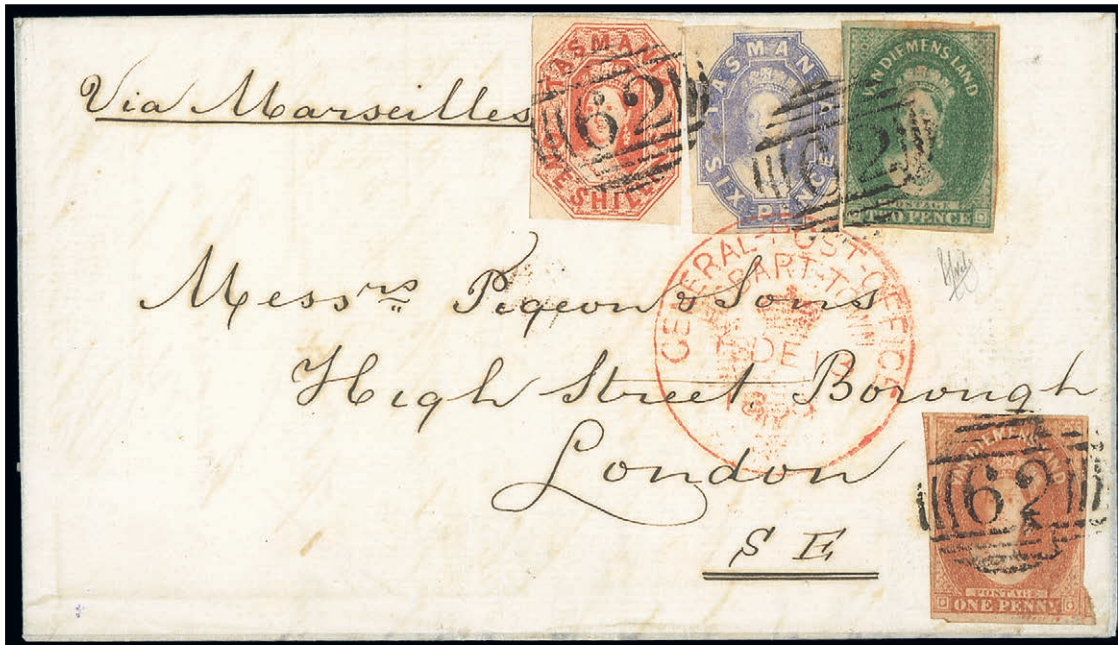 TASMANIA
ONE SHILLING
62
TASMANIA
SIX PENCE
62
VAN DIEMENS LAND
POSTAGE
TWO PENCE
Via Marseilles
GENERAL-POST-OFFICE
HOBART-TOWN
DE
Messrs Pigeon & Sons
High Street Borough
London
S E
VAN DIEMENS LAND
62
POSTAGE
ONE PENNY